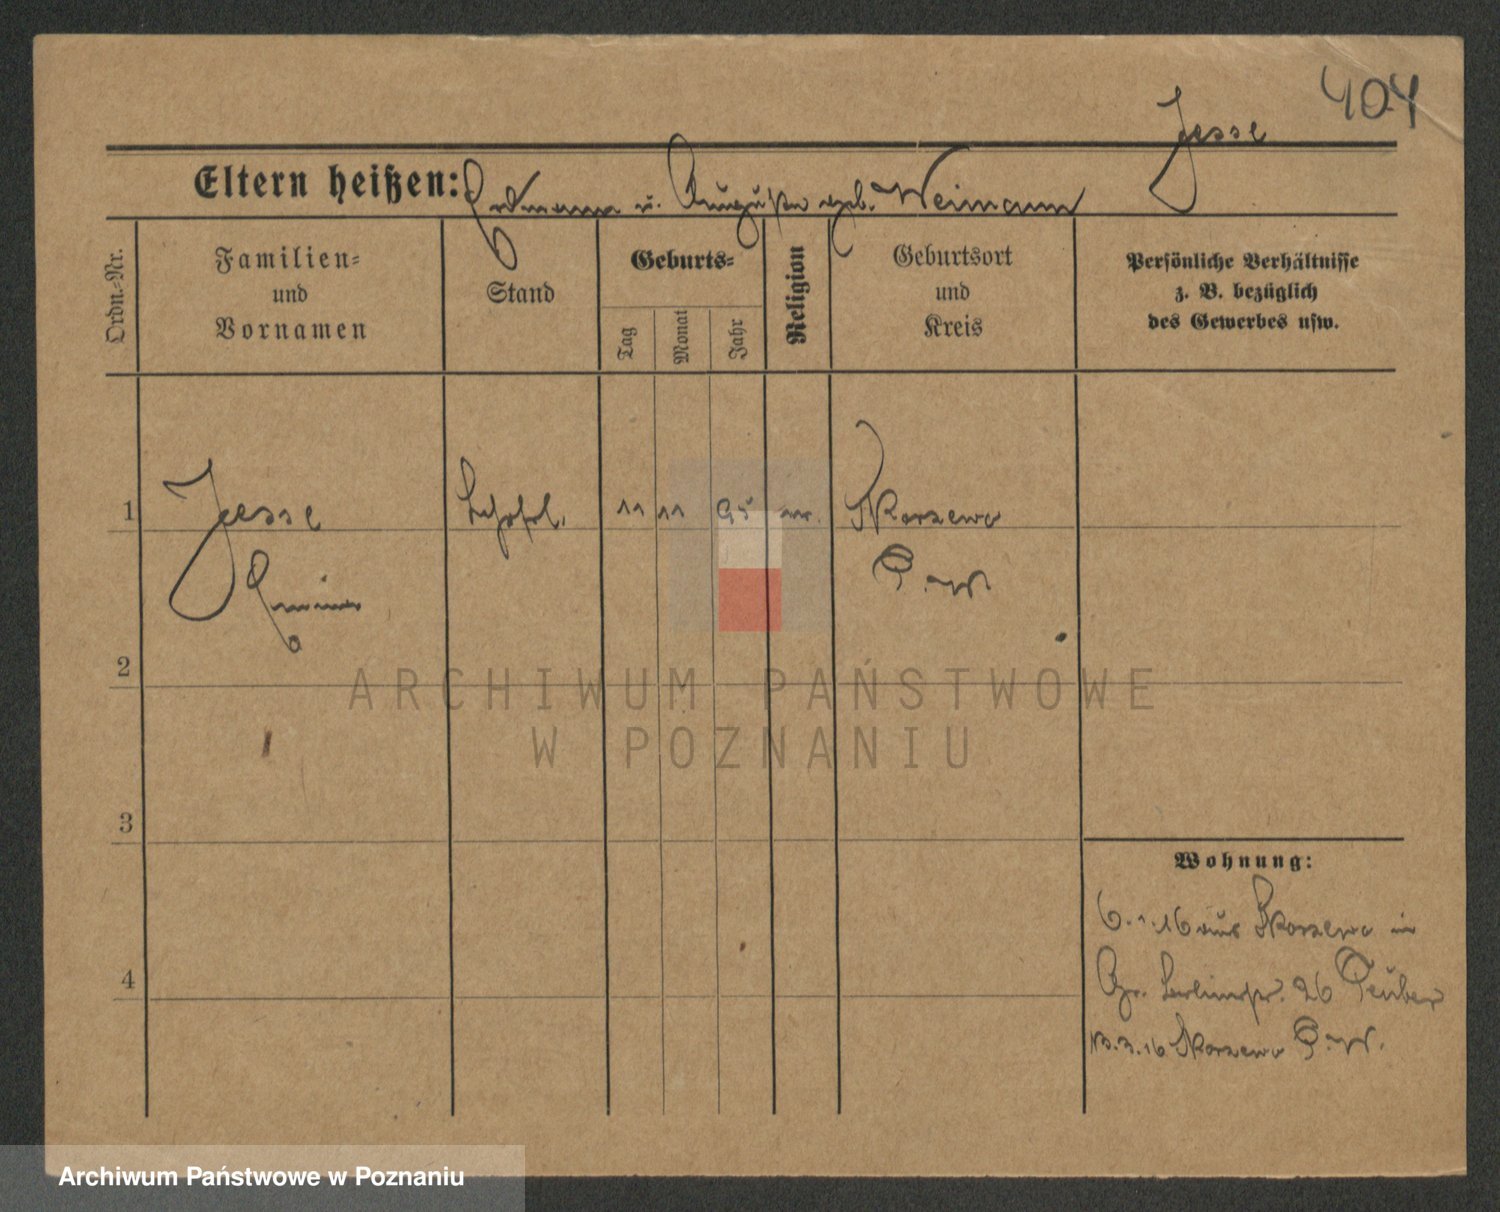 404
Jesse
Eltern heißen: Erdmann u. Auguste geb. Weimann
Ordn.-Nr.
Familien-
und
Vornamen
Stand
Geburts-
Tag
Monat
Jahr
Religion
Geburtsort
und
Kreis
Persönliche Verhältnisse
z. B. bezüglich
des Gewerbes usw.
1
Jesse
11 11 95
Skorzewo
P. W.
2
3
4
Wohnung:
6.1.16 aus Skorzewo in
Gr. Berlinerstr. 26 Teuber
13.3.16 Skorzewo P. W.
ARCHIWUM PAŃSTWOWE
W POZNANIU
Archiwum Państwowe w Poznaniu